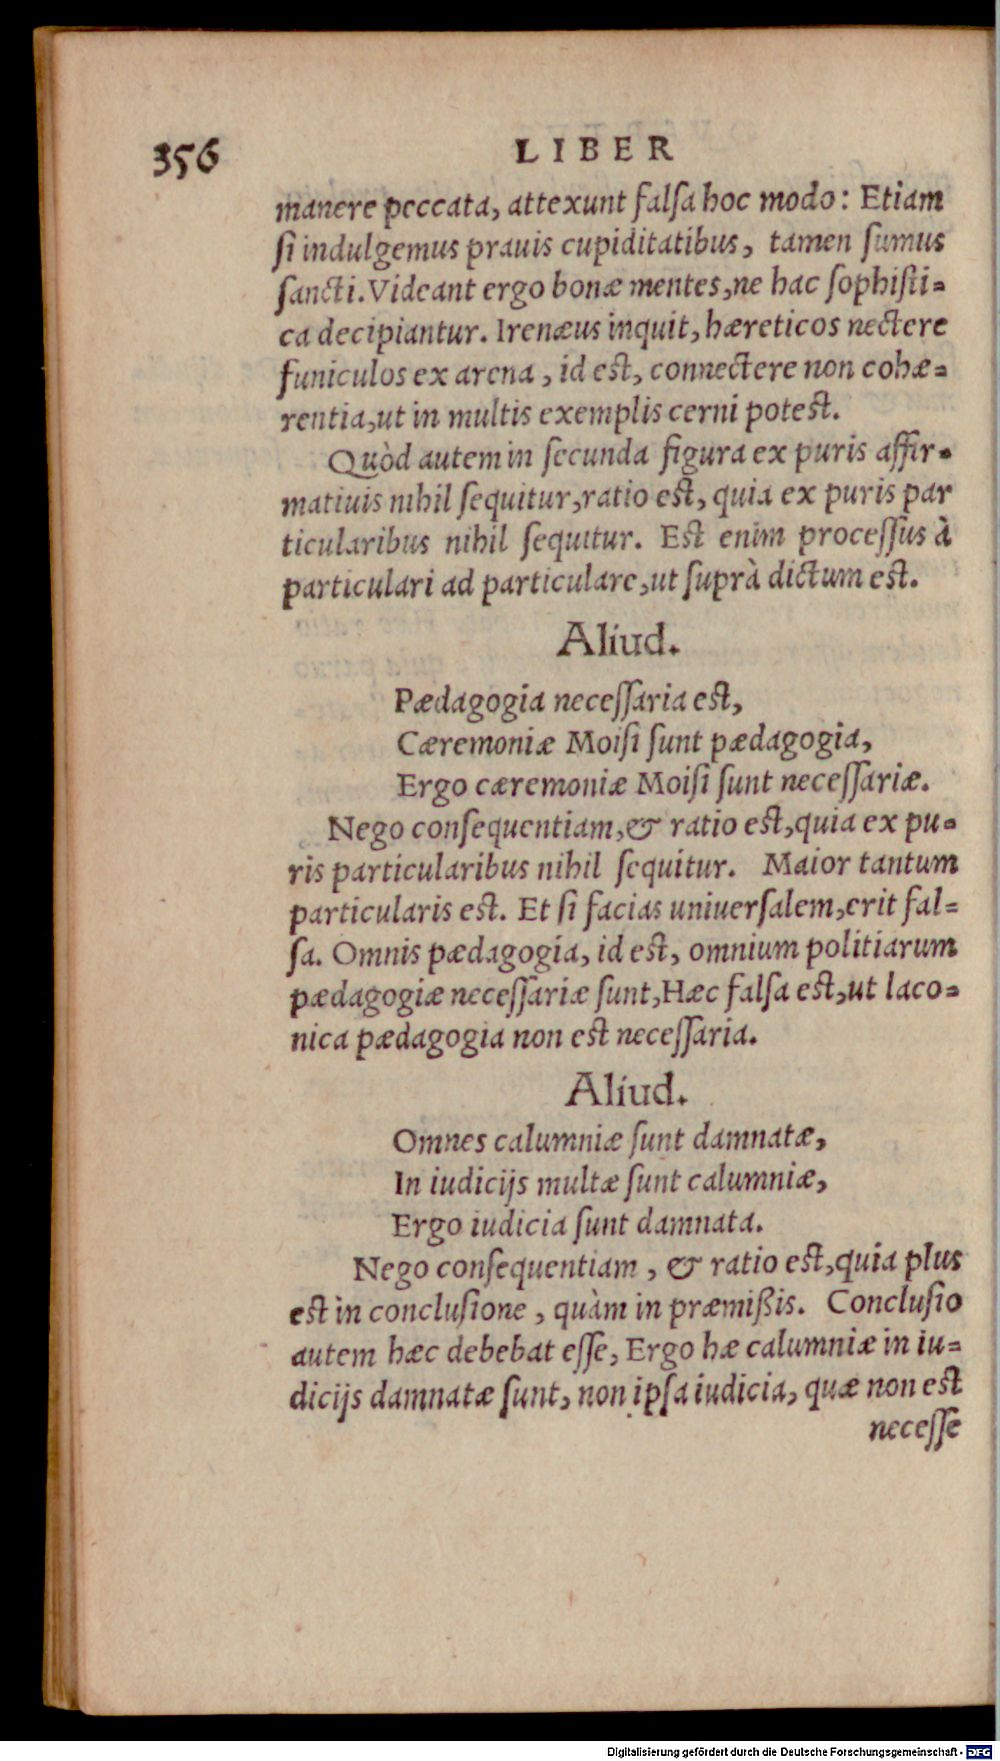 356
LIBER
manere peccata, attexunt falſa hoc modo: Etiam
ſi indulgemus prauis cupiditatibus, tamen ſumus
ſancti. Videant ergo bonæ mentes, ne hac ſophiſti-
ca decipiantur. Irenæus inquit, hæreticos nectere
funiculos ex arena, id eſt, connectere non cohæ-
rentia, ut in multis exemplis cerni poteſt.
Quòd autem in ſecunda figura ex puris affir-
matiuis nihil ſequitur, ratio eſt, quia ex puris par
ticularibus nihil ſequitur. Eſt enim proceſſus à
particulari ad particulare, ut ſuprà dictum eſt.
Aliud.
Pædagogia neceſſaria eſt,
Cæremoniæ Moiſi ſunt pædagogia,
Ergo cæremoniæ Moiſi ſunt neceſſariæ.
Nego conſequentiam, & ratio eſt, quia ex pu-
ris particularibus nihil ſequitur. Maior tantum
particularis eſt. Et ſi facias uniuerſalem, erit fal-
ſa. Omnis pædagogia, id eſt, omnium politiarum
pædagogiæ neceſſariæ ſunt, Hæc falſa eſt, ut laco-
nica pædagogia non eſt neceſſaria.
Aliud.
Omnes calumniæ ſunt damnatæ,
In iudicijs multæ ſunt calumniæ,
Ergo iudicia ſunt damnata.
Nego conſequentiam, & ratio eſt, quia plus
eſt in concluſione, quàm in præmißis. Concluſio
autem hæc debebat eſſe, Ergo hæ calumniæ in iu-
dicijs damnatæ ſunt, non ipſa iudicia, quæ non eſt
neceſſe
Digitalisierung gefördert durch die Deutsche Forschungsgemeinschaft - DFG